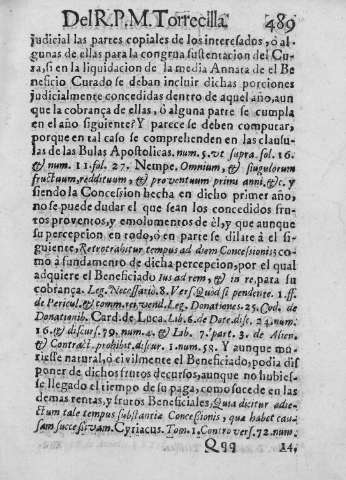 Del R. P. M. Torrecilla. 489
judicial las partes copiales de los interesados, ò al-
gunas de ellas para la congrua sustentacion del Cu-
ra, si en la liquidacion de la media Annata de el Be
neficio Curado se deban incluir dichas porciones
judicialmente concedidas dentro de aquel año, aun
que la cobrança de ellas, ò alguna parte se cumpla
en el año siguiente? Y parece se deben computar,
porque en tal caso se comprehenden en las clausu-
las de las Bulas Apostolicas. num. 5. vt supra. fol. 16.
& num. 11. fol. 27. Nempe. Omnium, & singulorum
fructuum, reddituum, & proventuum primi anni. &c. y
siendo la Concession hecha en dicho primer año,
no se puede dudar el que sean los concedidos fru
tos proventos, y emolumentos de èl, y que aunque
su percepcion, en todo, ò en parte se dilate à el si-
guiente, Retrotrahitur tempus ad diem Concesionis; co
mo à fundamento de dicha percepcion, por el qual
adquiere el Beneficiado Ius ad rem, & in re, para su
cobrança. Leg. Necessario. 8. Vers. Quod si pendente. 1. ff.
de Pericul. & comm. rei vend. Leg. Donationes. 25. Cod. de
Donationib. Card. de Luca. Lib. 6. de Date. disc. 24. num.
16. & discurs. 79. num. 4. & Lib. 7. part. 3. de Alien.
& Contract. prohibit. discur. 1. num. 58. Y aunque mu-
riesse natural, ò civilmente el Beneficiado, podia dis
poner de dichos frutos decursos, aunque no hubies-
se llegado el tiempo de su paga, como sucede en las
demas rentas, y frutos Beneficiales, Quia dicitur adie-
ctum tale tempus substantiæ Concessionis, qua habet cau-
sam successivam. Cyriacus. Tom. 1. Controvers. 72. num.
Qqq 14.